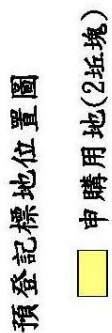 預登記標地位置圖
申購用地(2坵塊)